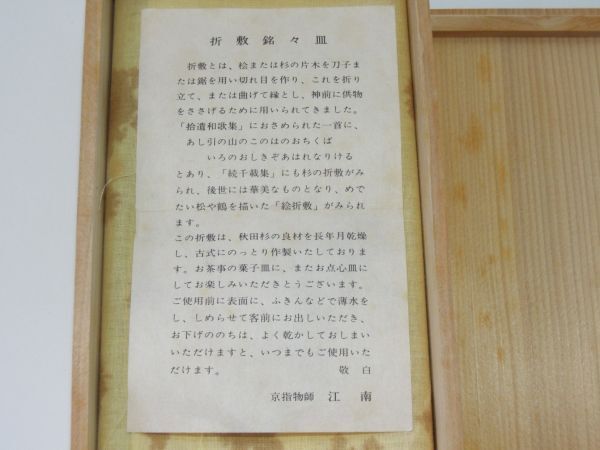 折敷銘々皿
折敷とは、桧または杉の片木を刀子ま
たは鋸を用い切れ目を作り、これを折り
立て、または曲げて縁とし、神前に供物
をささげるために用いられてきました。
「拾遺和歌集」におさめられた一首に、
あし引の山のこのはのおちくば
いろのおしきぞあはれなりける
とあり、「続千載集」にも杉の折敷がみ
られ、後世には華美なものとなり、めで
たい松や鶴を描いた「絵折敷」がみられ
ます。
この折敷は、秋田杉の良材を長年月乾燥
し、古式にのっとり作製いたしておりま
す。お茶事の菓子皿に、またお点心皿に
してお楽しみいただきとうございます。
ご使用前に表面に、ふきんなどで薄水を
し、しめらせて客前にお出しいただき、
お下げののちは、よく乾かしておしまい
いただけますと、いつまでもご使用いた
だけます。 敬白
京指物師 江南